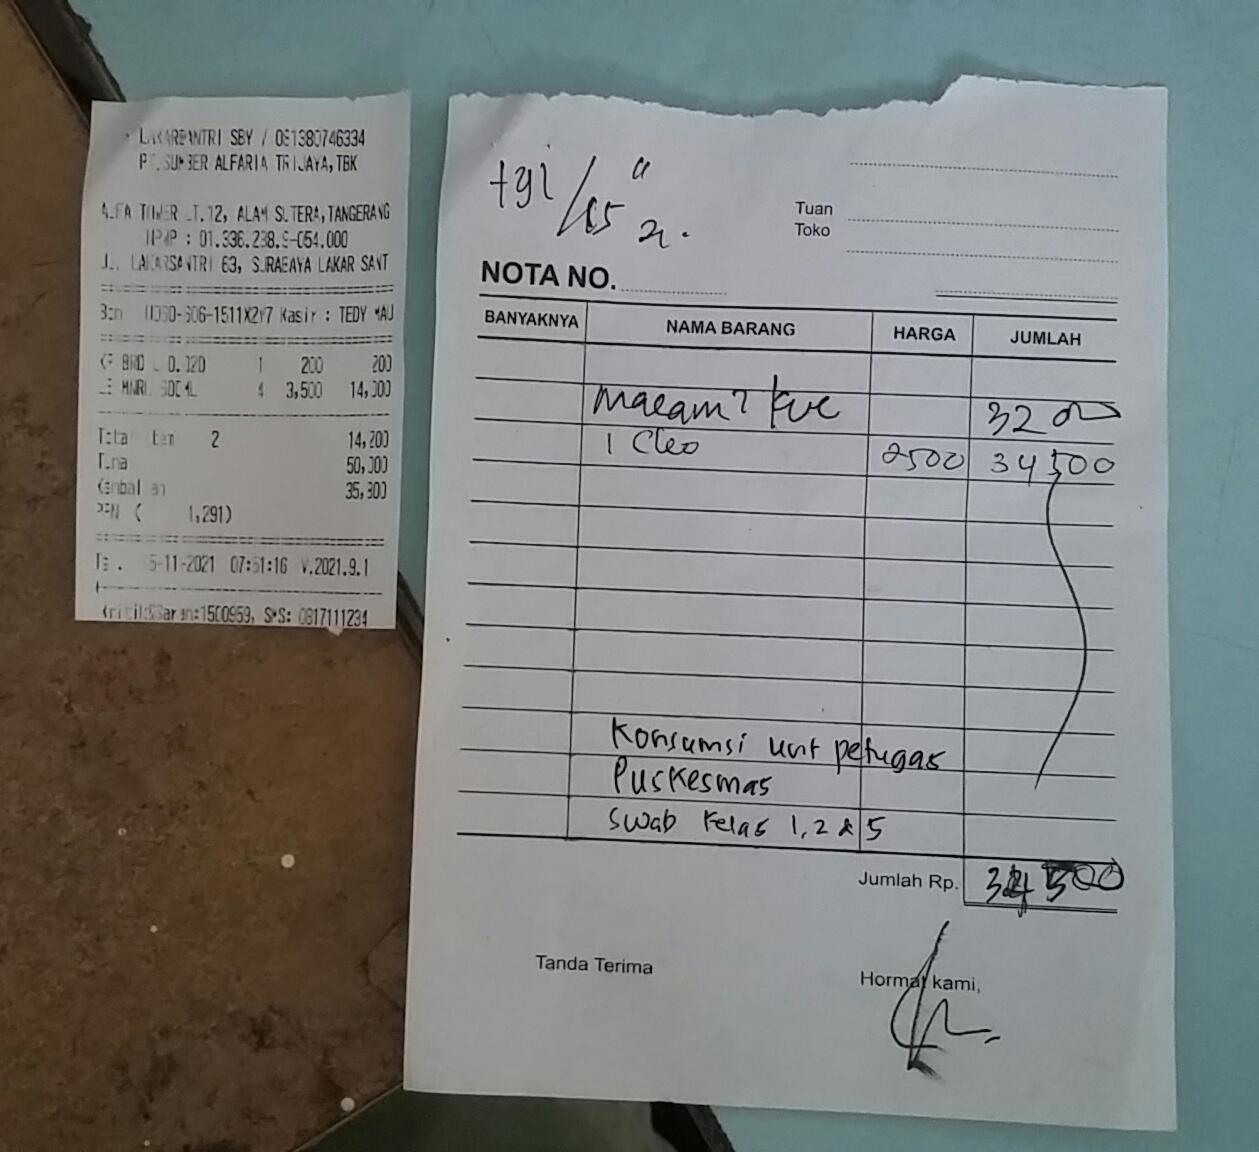 LAKARSANTRI SBY / 081380746334
PT.SUMBER ALFARIA TRIJAYA,TBK
ALFA TOWER LT.12, ALAM SUTERA,TANGERANG
NPWP : 01.336.238.9-054.000
JL. LAKARSANTRI 63, SURABAYA LAKAR SANT
Bon Kasir : TEDY MAU
1 200 200
4 3,500 14,000
Total Item 2 14,200
Tunai 50,000
Kembalian 35,800
PPN ( 1,291)
Tgl. 15-11-2021 07:51:16 V.2021.9.1
Kritik&Saran:1500959, SMS: 0817111234
tgl / 15
Tuan
Toko
NOTA NO.
BANYAKNYA NAMA BARANG HARGA JUMLAH
macam2 kue 32 000
1 Cleo 2500 34500
Konsumsi unt petugas
Puskesmas
Swab Kelas 1, 2 & 5
Jumlah Rp. 34 500
Tanda Terima Hormat kami,